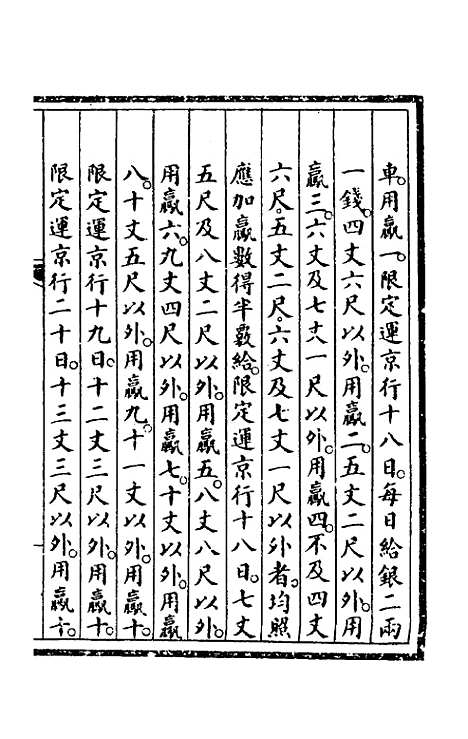 車。用羸一。限定運京行十八日。每日給銀二兩
一錢。四丈六尺以外。用羸二。五丈二尺以外。用
羸三。六丈及七丈一尺以外。用羸四。不及四丈
六尺。五丈二尺。六丈及七丈一尺以外者。均照
應加羸數得半數給。限定運京行十八日。七丈
五尺及八丈二尺以外。用羸五。八丈八尺以外。
用羸六。九丈四尺以外。用羸七。十丈以外。用羸
八。十丈五尺以外。用羸九。十一丈以外。用羸十。
限定運京行十九日。十二丈三尺以外。用羸十。
限定運京行二十日。十三丈三尺以外。用羸十。